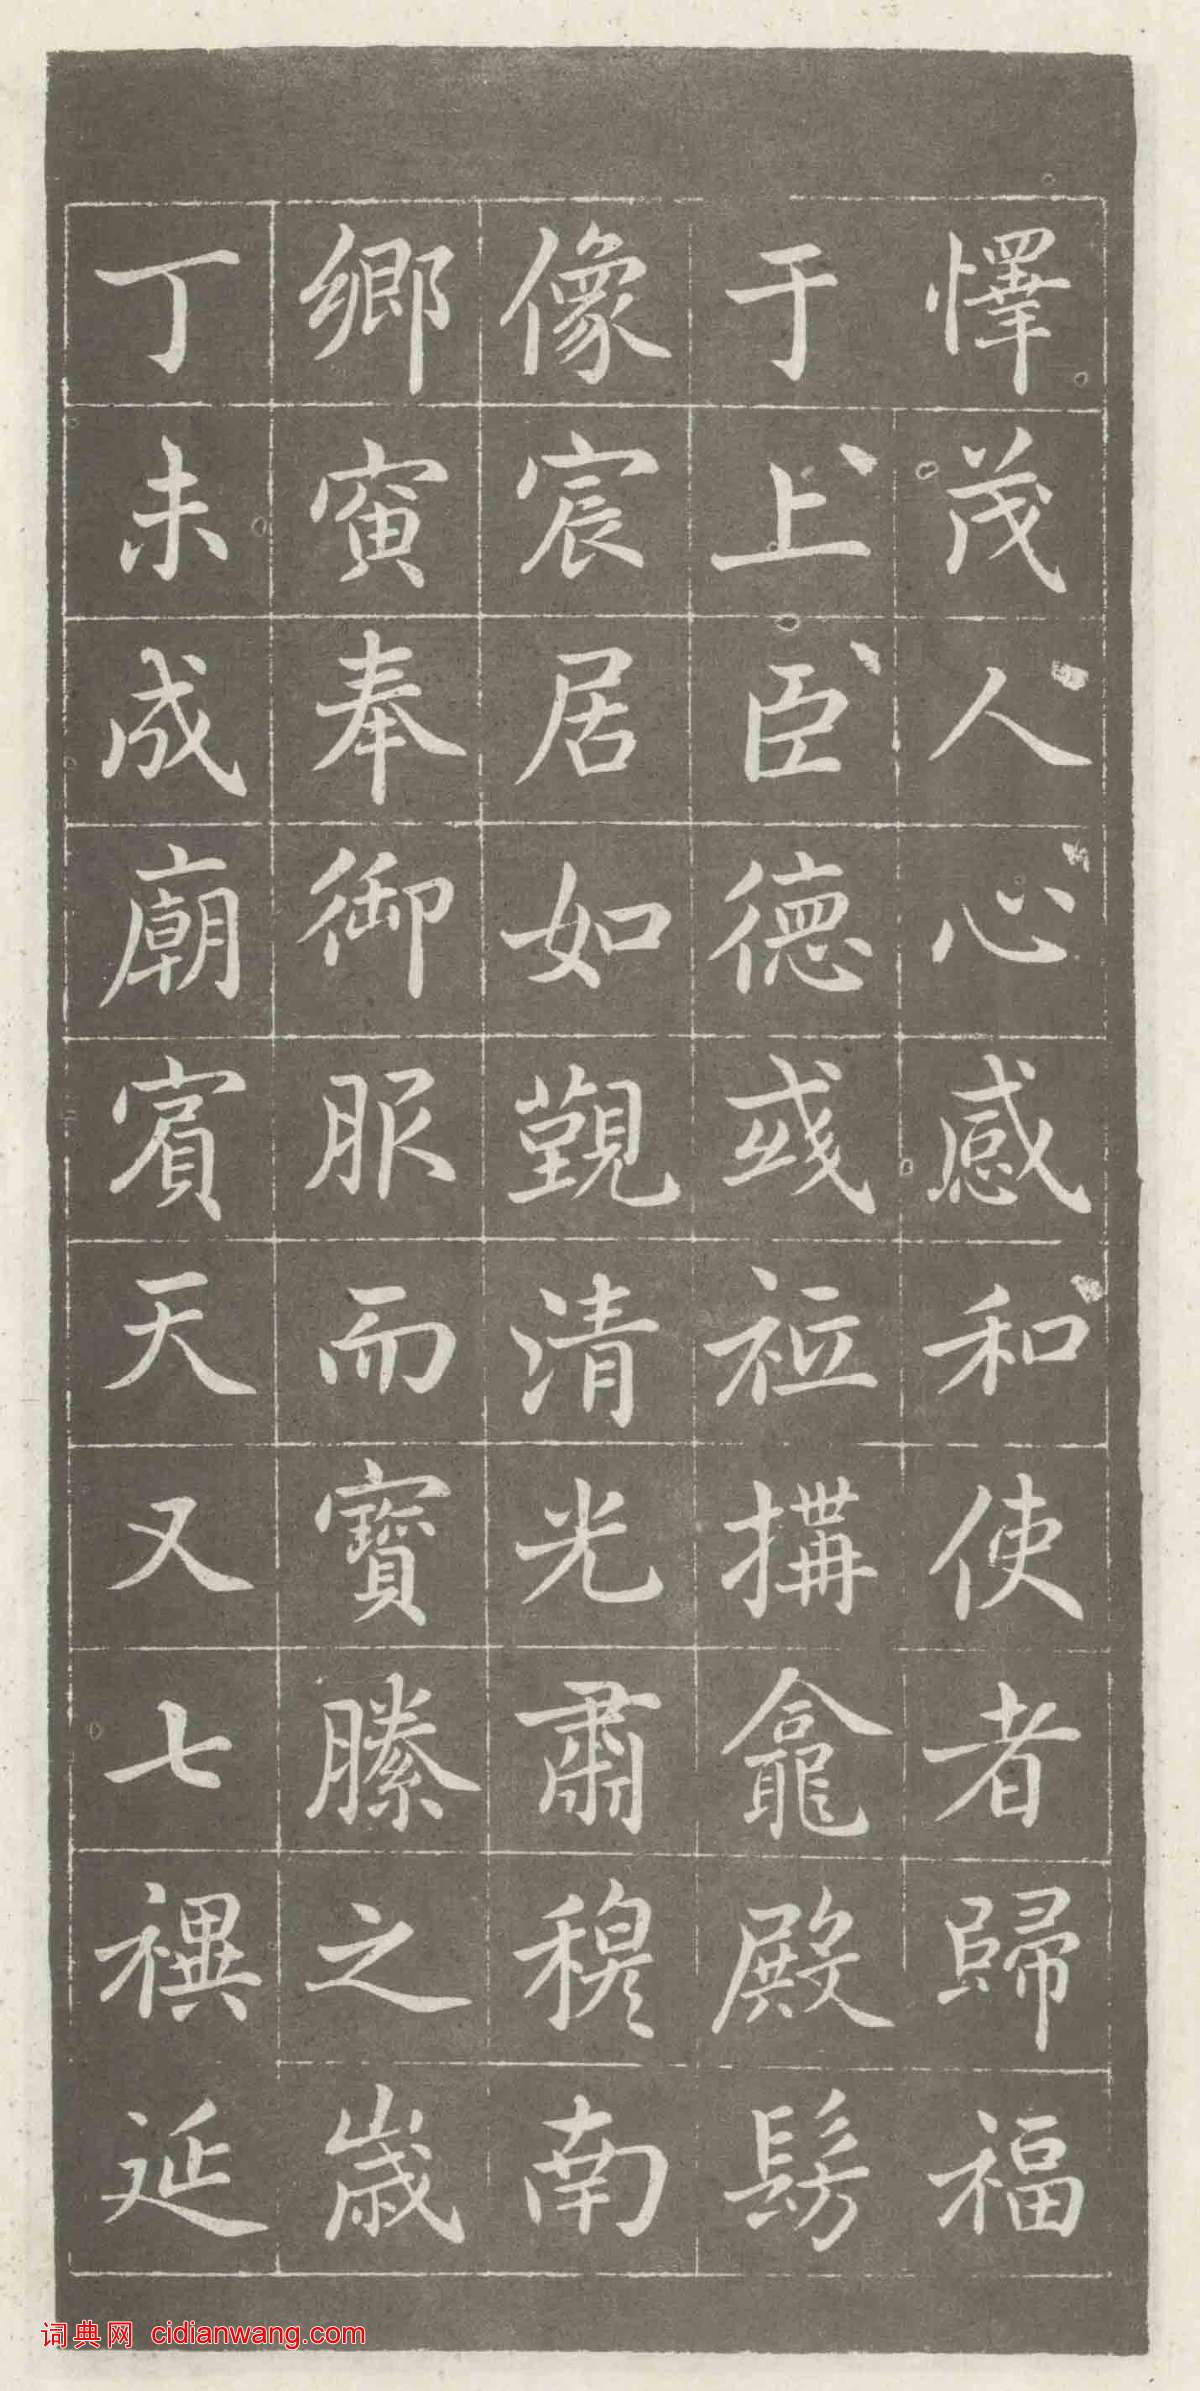 懌茂人心感和使者歸福
于上臣德或祉搆龕殿髣
像宸居如覲清光肅穆南
鄉寅奉御服而寶縢之歲
丁未成廟賓天又七禩延
词典网 cidianwang.com